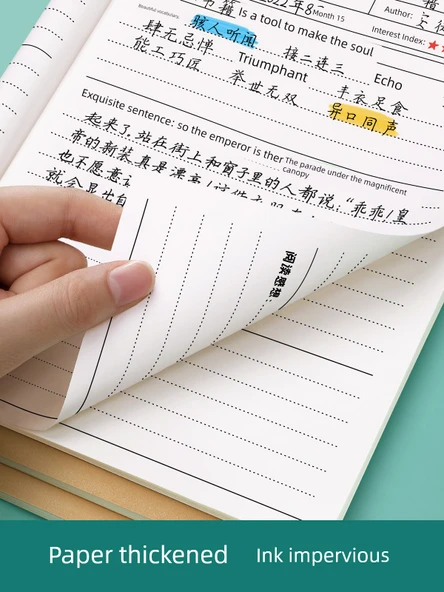 书籍 Is a tool to make the soul
2022年8 Month 15
Author:
Interest Index: ★
Beautiful vocabulary
骇人听闻 接二连三 Echo
肆无忌惮 Triumphant 丰衣足食
能工巧匠 举世无双 异口同声
Exquisite sentence: so the emperor is ther The parade under the magnificent canopy
起来了,站在街上和窗子里的人都说,“乖乖!皇
帝的新装真是漂亮!这件
也不愿意让
就会显出自
阅读感想:
Paper thickened Ink impervious